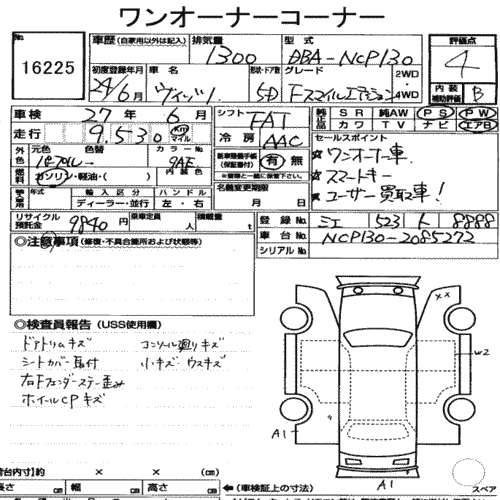 ワンオーナーコーナー
No.
16225
車歴 (自家用以外は記入) 排気量 型式 評価点
1300 DBA-NCP130 4
初度登録年月 車名 形状・ドア数 グレード 2WD
24/6月 ヴィッツ 5D Fスマイルエディション 4WD
内装補助評価 B
車検 27年 6月 シフト FAT
純正品 SR 純AW PS PW
カワ TV ナビ エアB
走行 9.530 km マイル 冷房 AAC
セールスポイント
外色 元色 色替 カラーNo. 9AE
パープル→ 内装色
ワンオーナー車、
スマートキー
ユーザー買取車!
燃料 ガソリン・軽油・( )
新車整備手帳(保証書付) 有 無
※書類と一緒に保管して下さい。
輸入車 年式 輸入区分 ハンドル 名義変更期限
ディーラー・並行 左・右 月 日
リサイクル預託金 9840円 乗車定員 人 積載量 t
登録No. 三重 523 ト 8888
車台No. NCP130-2085272
シリアルNo.
◎注意事項 (修復・不具合箇所および状態等)
◎検査員報告 (USS使用欄)
ドアトリムキズ コンソール廻りキズ
シートカバー取付 小キズ ウスキズ
右Fフェンダーステー歪み
ホイールCPキズ
XX
W2
A1
A1
スペア
荷台内寸)約 × × (cm)
長さ cm 幅 cm 高さ cm
←(車検証上の寸法)